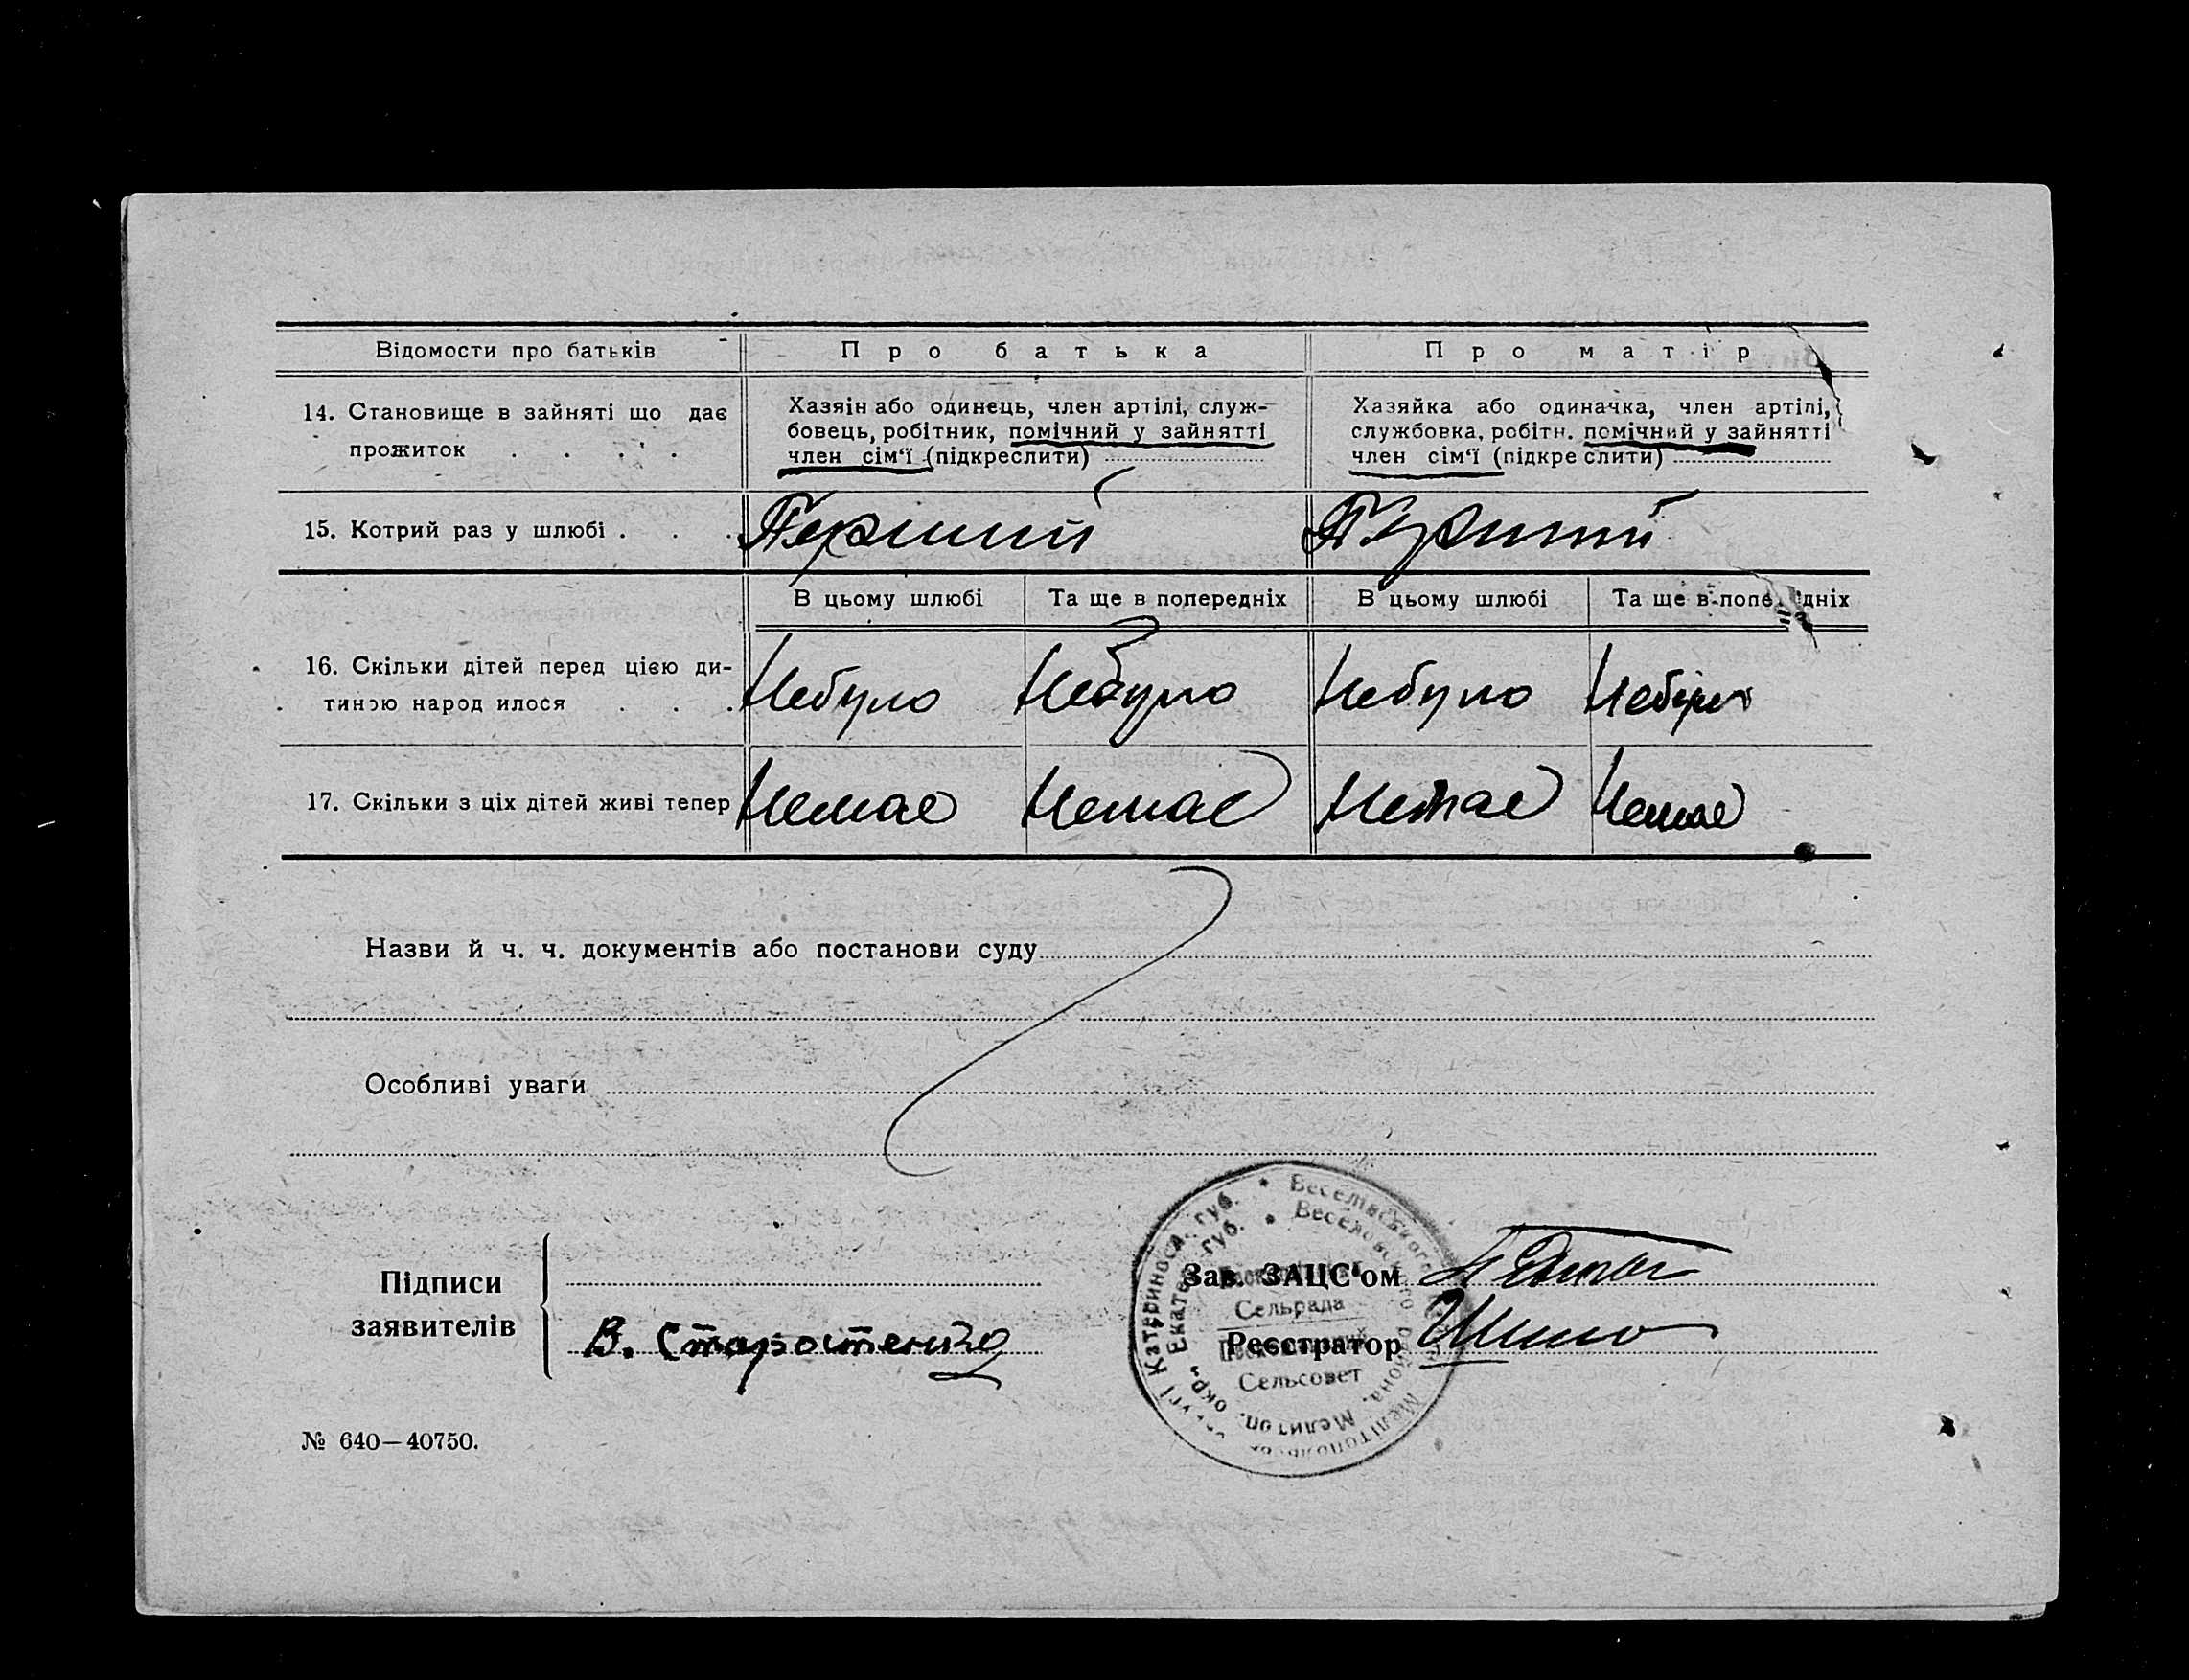 Відомости про батьків
Про батька
Про матір
14. Становище в зайняті що дає
прожиток
Хазяін або одинець, член артілі, служ-
бовець, робітник, помічний у зайнятті
член сім‘ї (підкреслити)
Хазяйка або одиначка, член артілі,
службовка, робітн. помічний у зайнятті
член сім‘ї (підкреслити)
15. Котрий раз у шлюбі
Перший
Перший
В цьому шлюбі
Та ще в попередніх
В цьому шлюбі
Та ще в попередніх
16. Скільки дітей перед цією ди-
тиною народ илося
Небуло
Небуло
Небуло
Небуло
17. Скільки з ціх дітей живі тепер
Немае
Немае
Немае
Немае
Назви й ч. ч. документів або постанови суду
Особливі уваги
Підписи
заявителів
В. Старостенко
Зав. ЗАЦС‘ом
Реєстратор
Катеринос. губ. * Веселівського
Екатер. губ. * Веселовского района. Мелитоп. окр.
Сельрада
Сельсовет
№ 640—40750.